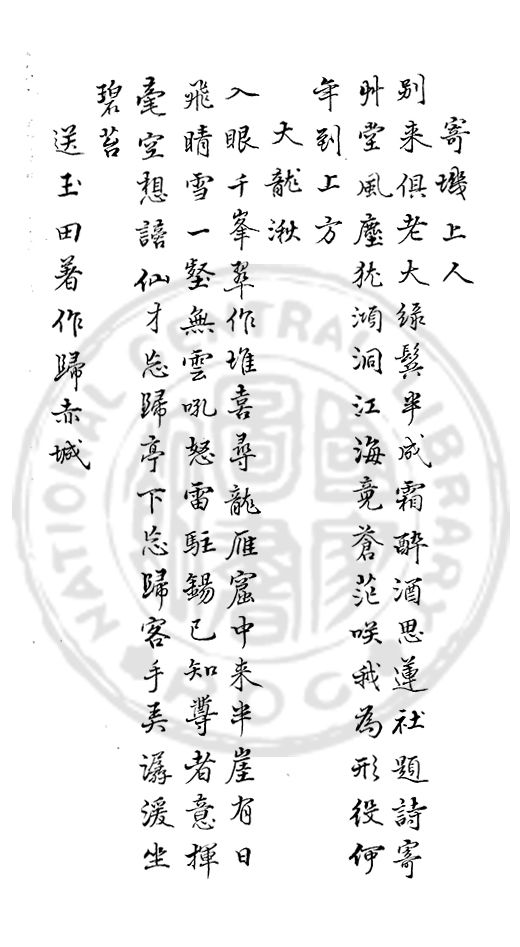 寄璣上人
别来俱老大綠鬓半成霜醉酒思蓮社題詩寄
艸堂風塵犹澒洞江海竟蒼茫咲我為形役何
年到上方
大龍湫
入眼千峯翠作堆喜尋龍雁窟中来半崖有日
飛晴雪一壑無雲吼怒雷駐錫已知尊者意揮
毫空想謫仙才忘歸亭下忘歸客手弄潺湲坐
碧苔
送玉田著作歸赤城
NATIONAL CENTRAL LIBRARY